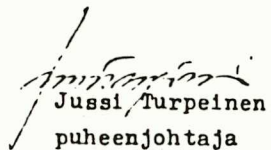 Jussi Turpeinen
puheenjohtaja